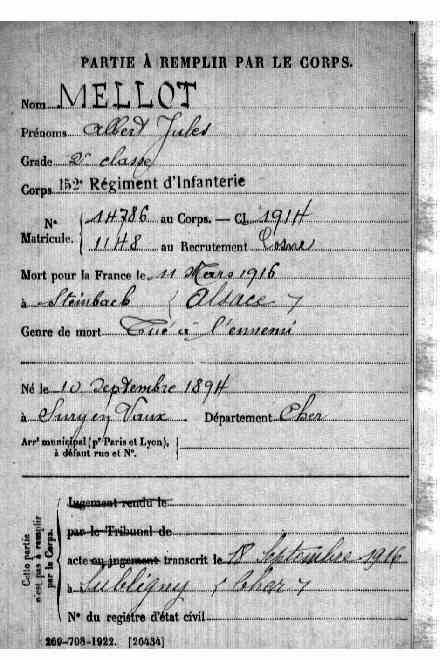 PARTIE À REMPLIR PAR LE CORPS.
Nom MELLOT
Prénoms Albert Jules
Grade 2e classe
Corps 152e Régiment d'Infanterie
N° Matricule. { 14786 au Corps. — Cl. 1914
1148 au Recrutement Cosne
Mort pour la France le 11 Mars 1916
à Steinbach (Alsace)
Genre de mort Tué à l'ennemi
Né le 10 septembre 1894
à Sury en Vaux Département Cher
Arrt municipal (pr Paris et Lyon),
à défaut rue et N°.
Cette partie n'est pas à remplir par le Corps.
Jugement rendu le
par le Tribunal de
acte ou jugement transcrit le 18 Septembre 1916
à Subligny (Cher)
N° du registre d'état civil
269-708-1922. [26434]